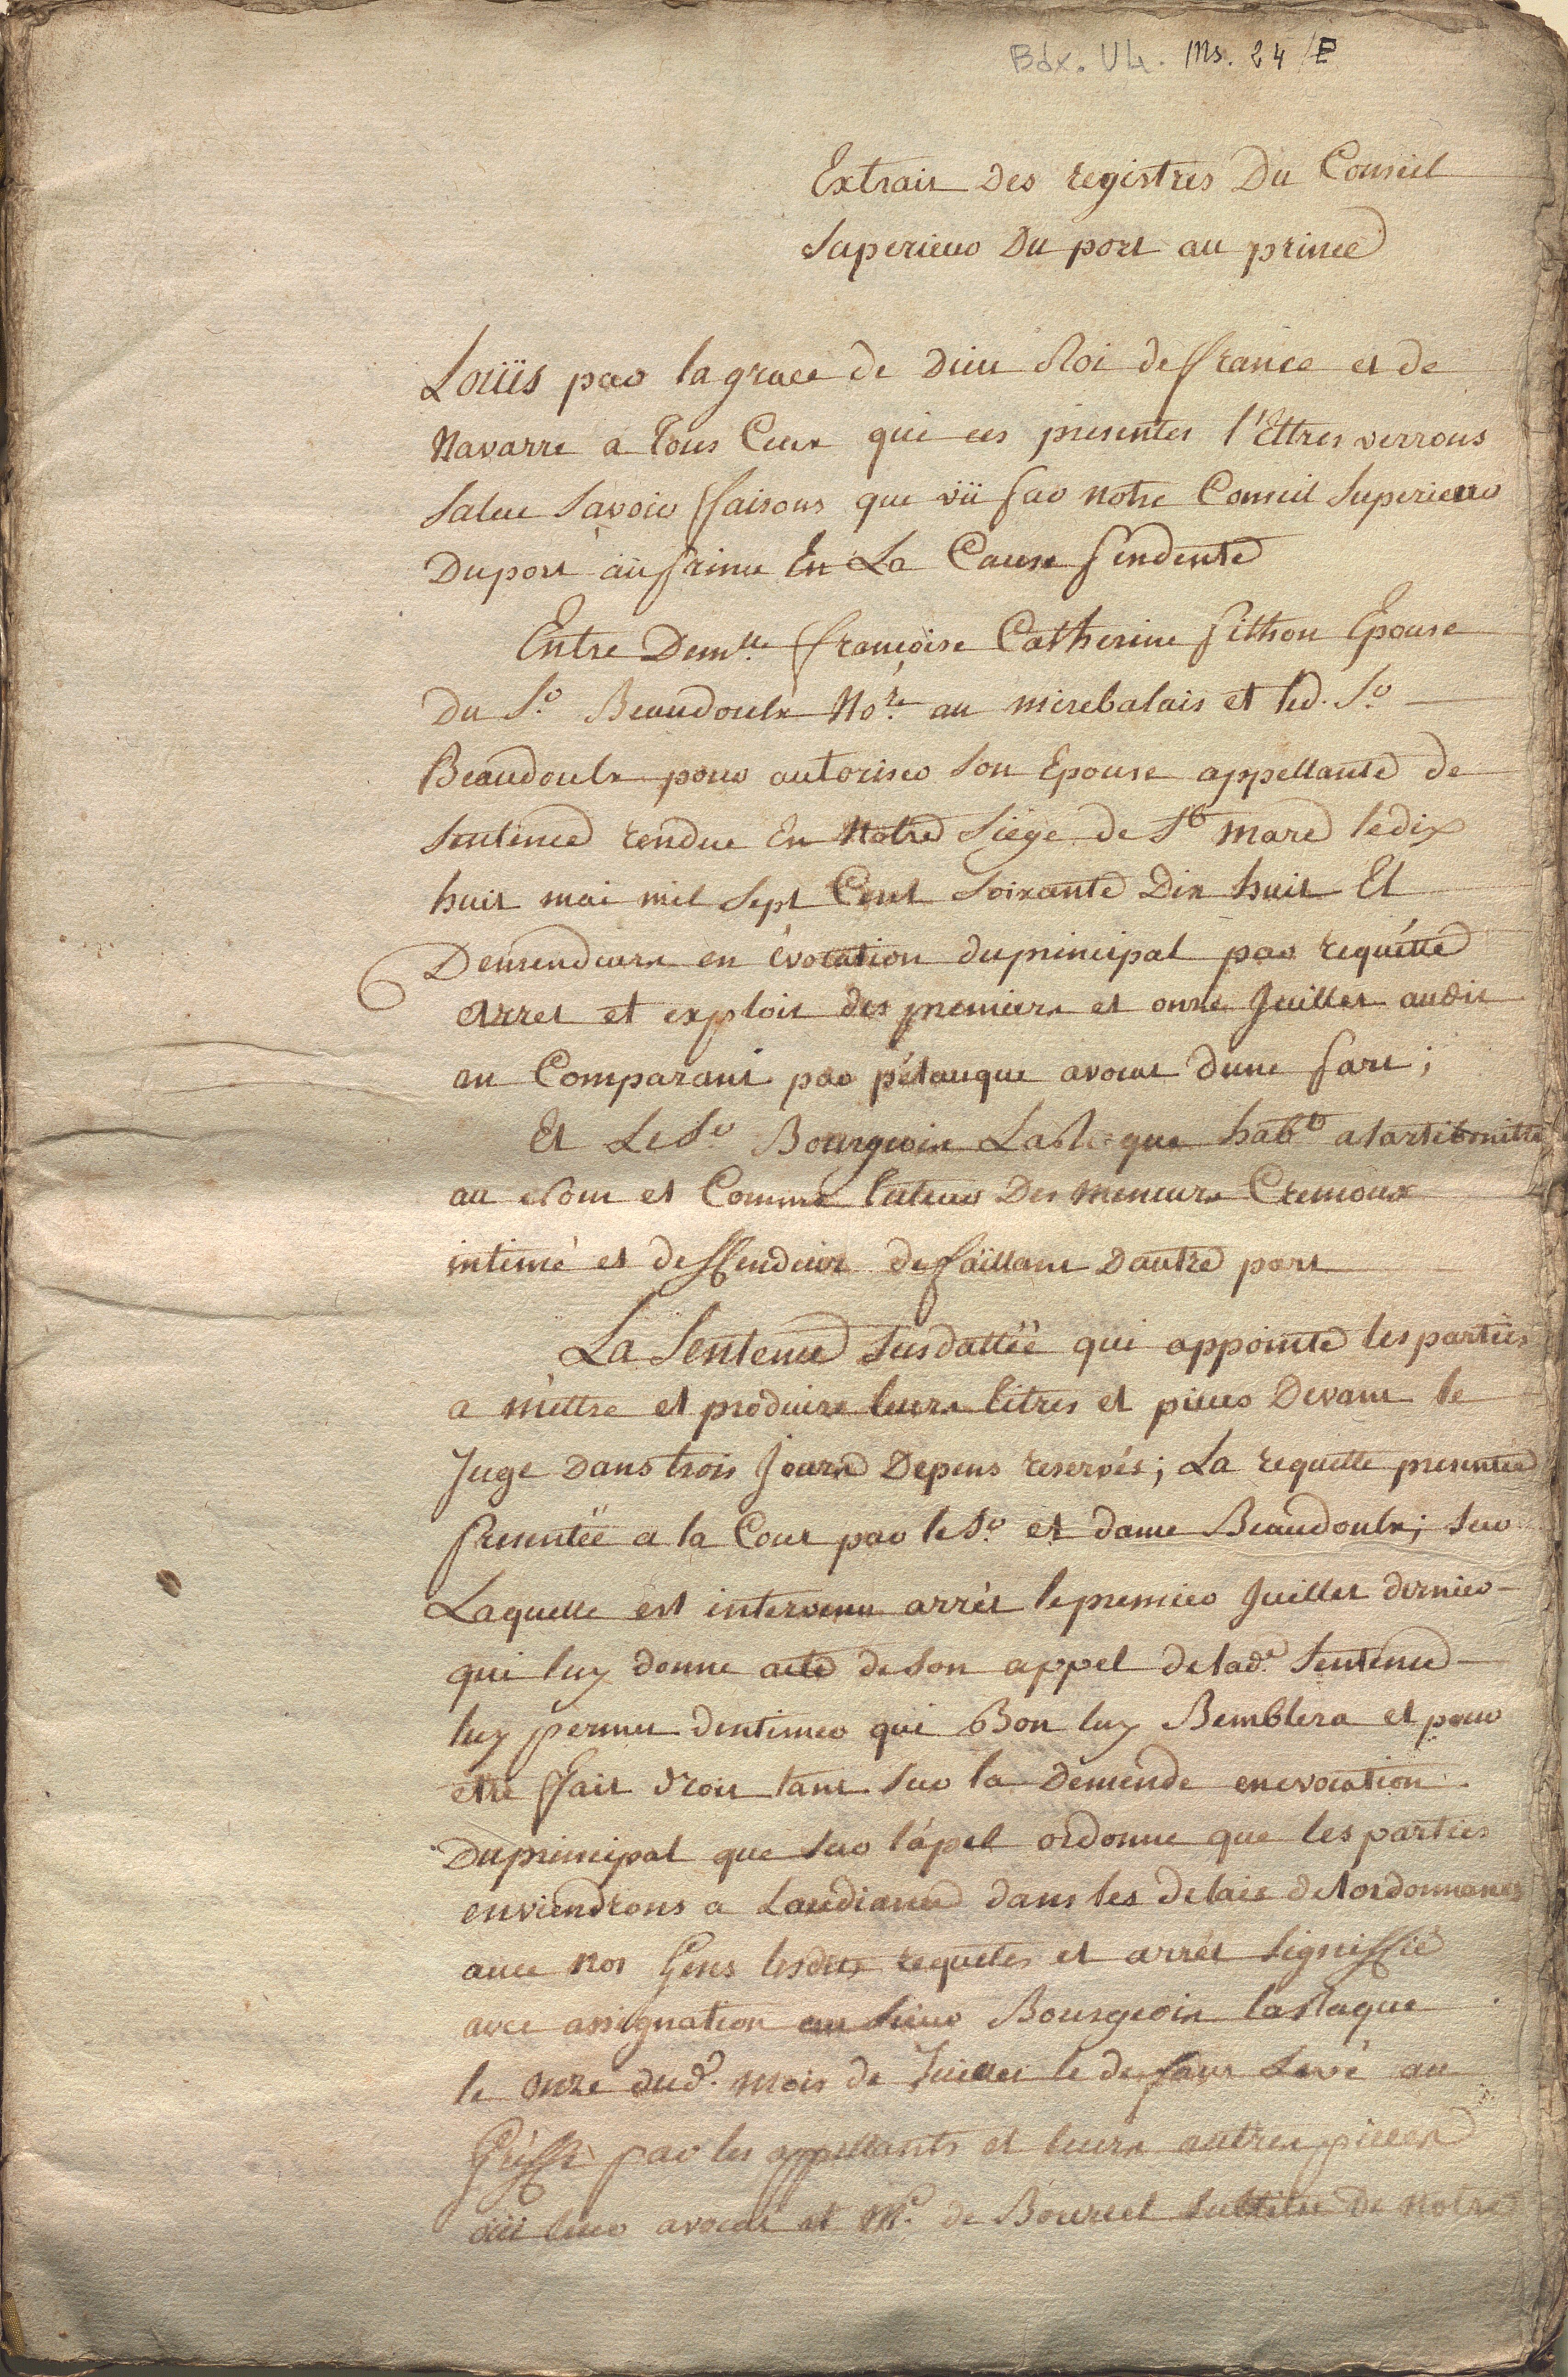 Bdx. U4. Ms. 24 /E
Extrait des registres Du Conseil
Superieur Du port au prince
Loüis par la grace de Dieu Roi de france et de
Navarre a tous Ceux qui ces presentes l'Ettres verrons
Salut Savoir ffaisons que vü par notre Conseil Superieur
Duport au prince En La Cause pendente
Entre Demlle ffrançoise Catherine pithon Epouse
Du Sr. Beaudoulx Nore. au mirebalais et led. Sr.
Beaudoulx pour autoriser Son Epouse appellante de
Sentence rendue En Notre Siége de St marc ledix
huit mai mil Sept Cent Soixante Dix huit Et
Demendeurs en évocation duprincipal par requétte
Arret et exploit des premiers et onze Juillet audit
an Comparant par pétauque avocat dune part;
Et Le Sr. Bourgeoix LaRoque habt alartibonitte
au Nom et Comme tuteur Des meneurs Cremoux
intimé et deffendeur defaillant Dautre part
La Sentence Susdattéë qui appointe les parties
a méttre et produire leurs titres et pieces Devant le
Juge Dans trois Jours Depens reservés; La requette presentée
presentéë a la Cour par le Sr. et dame Beaudoulx; Sur
Laquelle est intervenu arrét le premier Juillet dernier
qui luy donne acte de Son appel de lade. Sentence
luy permet dentimer qui Bon luy Semblera et pour
etre ffait droit tant Sur la Demende en evocation
Duprincipal que Sur lápel ordonne que les parties
enviendrons a Laudiance dans les delais delordonnance
avec nos Gens lesdites requetes et arrét Signiffié
avec assignation au Sieur Bourgeoix laRaque
le onze dud. mois de Juillet le deffaut Levé au
Gréffe par les appellants et leurs autres pieces
oüi leur avocat et Me. de Bourcel Subtitut de notre